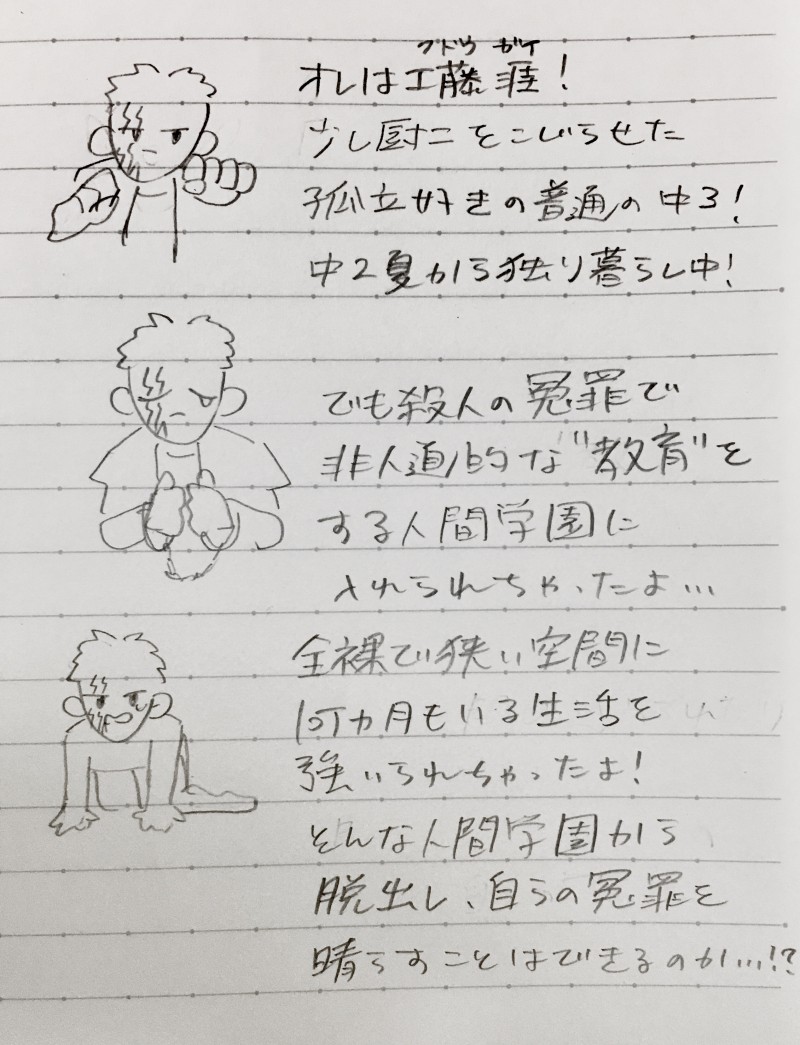 クドウ ガイ
オレは工藤 涯！
少し厨二をこじらせた
孤立好きの普通の中3！
中2夏から独り暮らし中！
でも殺人の冤罪で
非人道的な"教育"を
する人間学園に
入れられちゃったよ…
全裸で狭い空間に
何カ月もいる生活を
強いられちゃったよ！
そんな人間学園から
脱出し、自らの冤罪を
晴らすことはできるのか…!?